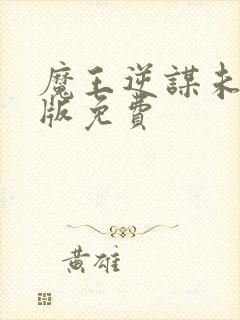 魔王逆謀未
版免費
黃雄